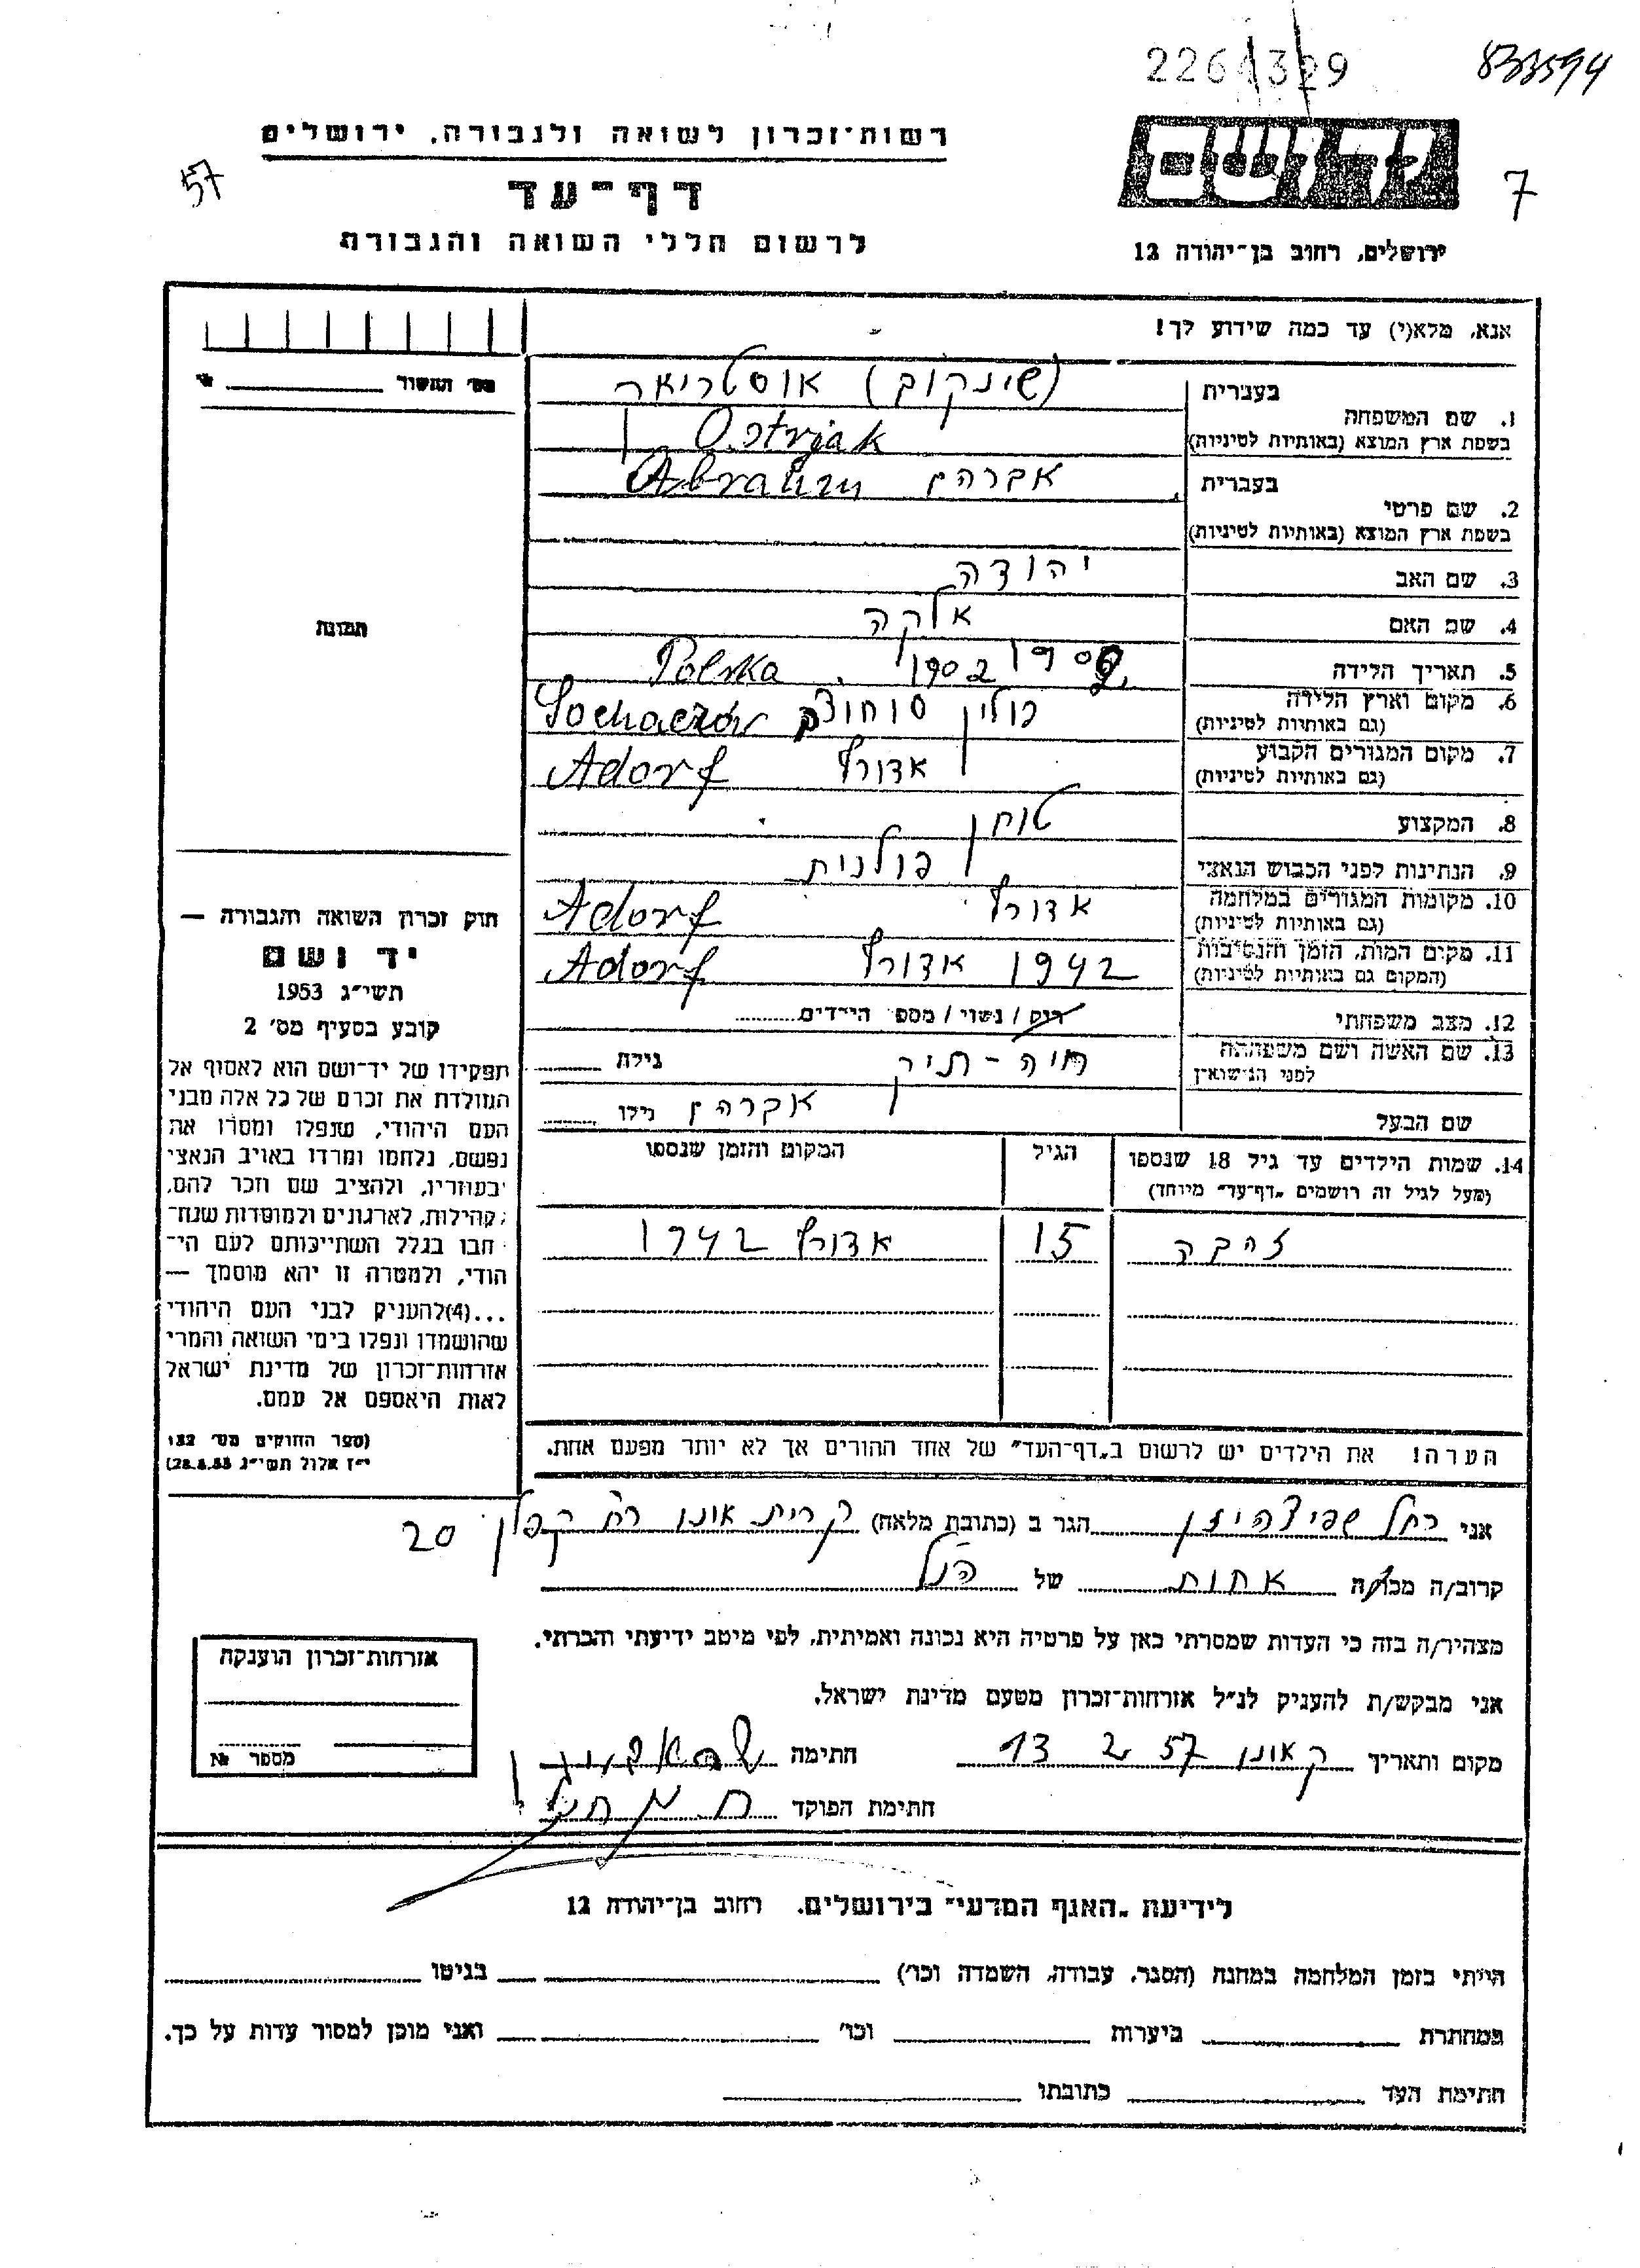 833594
226 3 9
רשות־זכרון לשואה ולגבורה, ירושלים
57
7
דף־עד
לרשום חללי השואה והגבורה
ירושלים, רחוב בן־יהודה 12
אנא, מלא(י) עד כמה שידוע לך!
מס'
בעברית
1. שם המשפחה
(שינקוב)
בשפת ארץ המוצא (באותיות לטיניות) Ostrjak
בעברית אברהם Abrahm
2. שם פרטי
בשפת ארץ המוצא (באותיות לטיניות)
3. שם האב יהודה
4. שם האם אלקה
תמונה
5. תאריך הלידה 1902 1902 Polska
6. מקום וארץ הלידה פולין Sochaczów
(גם באותיות לטיניות)
7. מקום המגורים הקבוע אדורף Adorf
(גם באותיות לטיניות)
8. המקצוע טוחן
9. הנתינות לפני הכבוש הנאצי פולנית
10. מקומות המגורים במלחמה אדורף Adorf
(גם באותיות לטיניות)
11. מקום המות, הזמן והנסיבות 1942 אדורף Adorf
(המקום גם באותיות לטיניות)
12. מצב משפחתי רוק / נשוי / מספ' הילדים
13. שם האשה ושם משפחתה
לפני הנישואין חיה - גילה
שם הבעל אברהם גילו
14. שמות הילדים עד גיל 18 שנספו הגיל המקום והזמן שנספו
(מעל לגיל זה רושמים "דף־עד" מיוחד)
זהבה 15 אדורף 1942
הערה! את הילדים יש לרשום ב"דף־העד" של אחד ההורים אך לא יותר מפעם אחת.
חוק זכרון השואה והגבורה —
יד ושם
תשי"ג 1953
קובע בסעיף מס' 2
תפקידו של יד־ושם הוא לאסוף אל
המולדת את זכרם של כל אלה מבני
העם היהודי, שנפלו ומסרו את
נפשם, נלחמו ומרדו באויב הנאצי
ובעוזריו, ולהציב שם וזכר להם,
לקהילות, לארגונים ולמוסדות שנח־
רבו בגלל השתייכותם לעם הי־
הודי, ולמטרה זו יהא מוסמך —
...(4)להעניק לבני העם היהודי
שהושמדו ונפלו בימי השואה והמרי
אזרחות־זכרון של מדינת ישראל
לאות היאספם אל עמם.
(ספר החוקים מס' 132
י"ז אלול תשי"ג 28.8.53)
אני רחל הגר ב (כתובת מלאה) קרית אונו רח קפלן 20
קרוב/ה מכר/ה אחות של הנ"ל
מצהיר/ה בזה כי העדות שמסרתי כאן על פרטיה היא נכונה ואמיתית, לפי מיטב ידיעתי והכרתי.
אני מבקש/ת להעניק לנ"ל אזרחות־זכרון מטעם מדינת ישראל.
מקום ותאריך ק אונו 13 2 57 חתימה
חתימת הפוקד
אזרחות־זכרון הוענקה
מספר №
לידיעת "האגף המדעי" בירושלים. רחוב בן־יהודה 12
הייתי בזמן המלחמה במחנה (הסגר, עבודה, השמדה וכו') בגיטו
במחתרת ביערות וכו' ואני מוכן למסור עדות על כך.
חתימת העד כתובתו